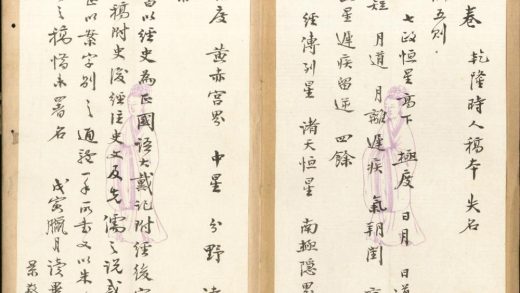 卷 乾隆時人稿本 失名
五則.
七政恒星高下 極度 日月 日道
月道 月離遲疾 氣朔閏
星遲疾留逆 四餘
經傳列星 諸天恒星 南極隱界
度 黃赤宮界 中星 分野
以經史為正國語大戴記附經後
稿附史後經注史文及先儒之說或
正以案字別之通體一手所書又以朱
之稿惜未署名 戊寅臘月讀畢